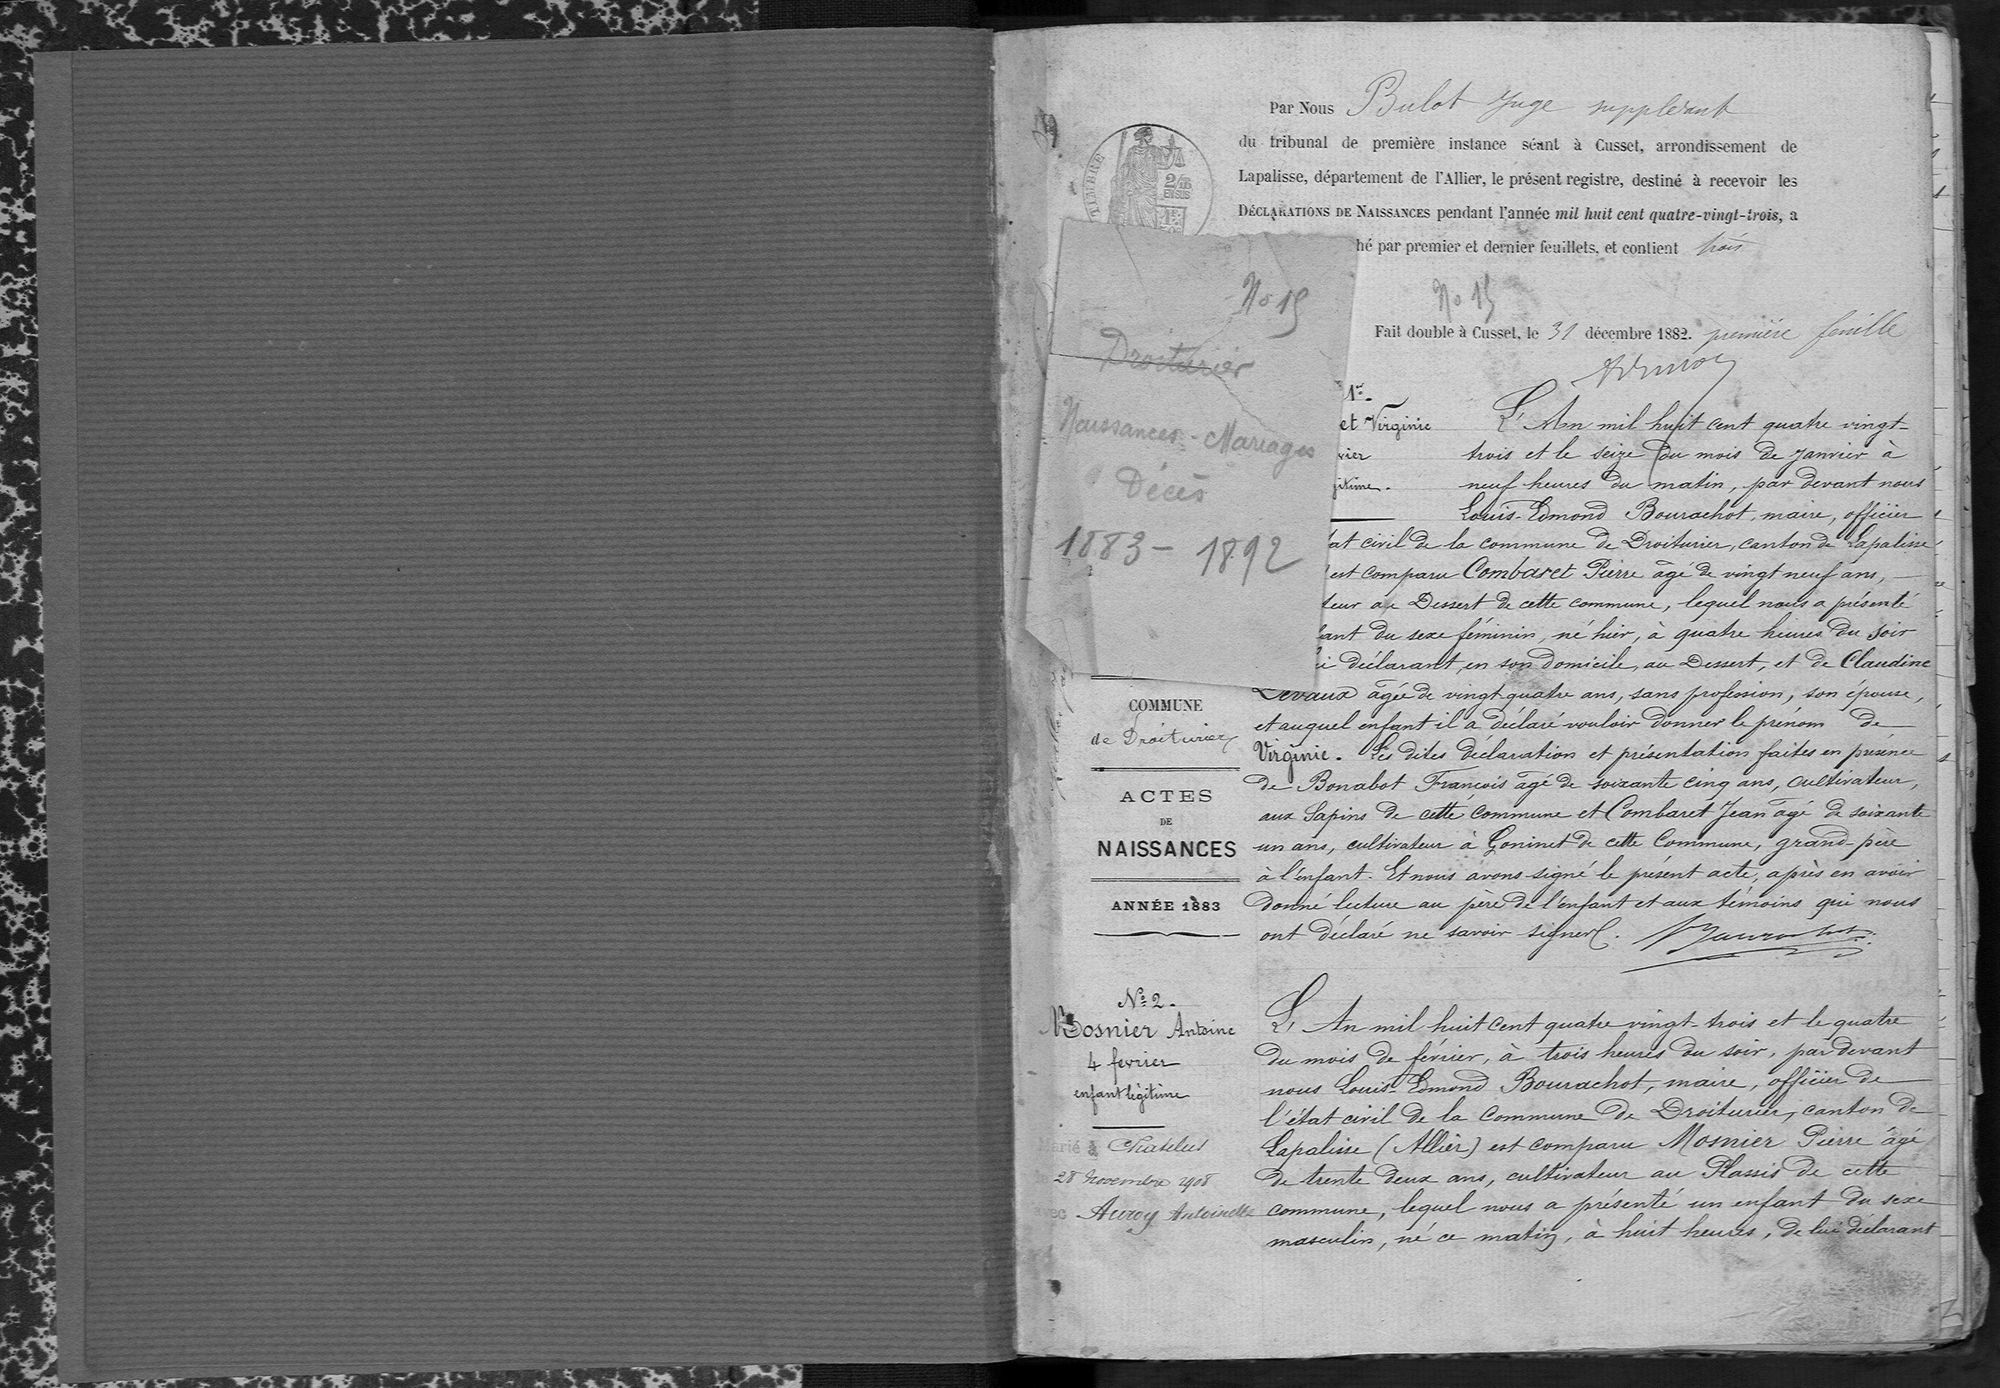 Par Nous Bulot Juge suppléant
du tribunal de première instance séant à Cusset, arrondissement de
Lapalisse, département de l'Allier, le présent registre, destiné à recevoir les
DÉCLARATIONS DE NAISSANCES pendant l'année mil huit cent quatre-vingt-trois, a
hé par premier et dernier feuillets, et contient trois
No 15
Fait double à Cusset, le 31 décembre 1882. première feuille
TIMBRE
2/10
EN SUS
No 15
Droiturier
Naissances - Mariages
Décès
1883 - 1892
1er.
et Virginie
vier
gitime.
L'An mil huit cent quatre vingt-
trois et le seize du mois de janvier à
neuf heures du matin, par devant nous
Louis-Edmond Bourachot, maire, officier
tat civil de la commune de Droiturier, canton de Lapalisse
est comparu Combaret Pierre âgé de vingt neuf ans,
teur au Dessert de cette commune, lequel nous a présenté
fant du sexe féminin, né hier, à quatre heures du soir
i déclarant, en son domicile, au Dessert, et de Claudine
Devaux âgée de vingt quatre ans, sans profession, son épouse,
et auquel enfant il a déclaré vouloir donner le prénom de
Virginie. Les dites déclaration et présentation faites en présence
de Bonabot François âgé de soixante cinq ans, cultivateur,
aux Sapins de cette commune et Combaret Jean âgé de soixante
un ans, cultivateur à Goninet de cette Commune, grand-père
à l'enfant. Et nous avons signé le présent acte, après en avoir
donné lecture au père de l'enfant et aux témoins qui nous
ont déclaré ne savoir signer. Bourachot
COMMUNE
de Droiturier
ACTES
DE
NAISSANCES
ANNÉE 1883
No 2.
Mosnier Antoine
4 fevrier
enfant légitime
arié à Chatelus
28 novembre 1908
ec Auroy Antoinette
L'An mil huit cent quatre vingt-trois et le quatre
du mois de février, à trois heures du soir, par devant
nous Louis-Edmond Bourachot, maire, officier de
l'état civil de la Commune de Droiturier, canton de
Lapalisse (Allier) est comparu Mosnier Pierre âgé
de trente deux ans, cultivateur au Plassis de cette
commune, lequel nous a présenté un enfant du sexe
masculin, né ce matin, à huit heures, de lui déclarant